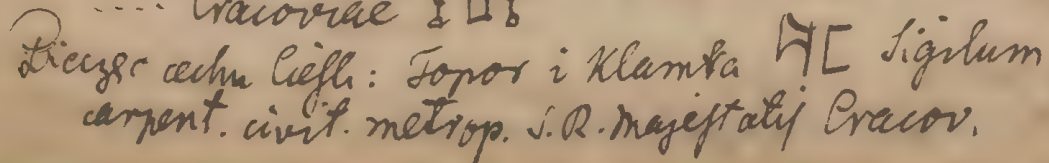 .... Cracoviae
Pieczęć cechu Cieśli: Topor i Klamka Sigilum
carpent. civit. metrop. S. R. Majestatis Cracov.